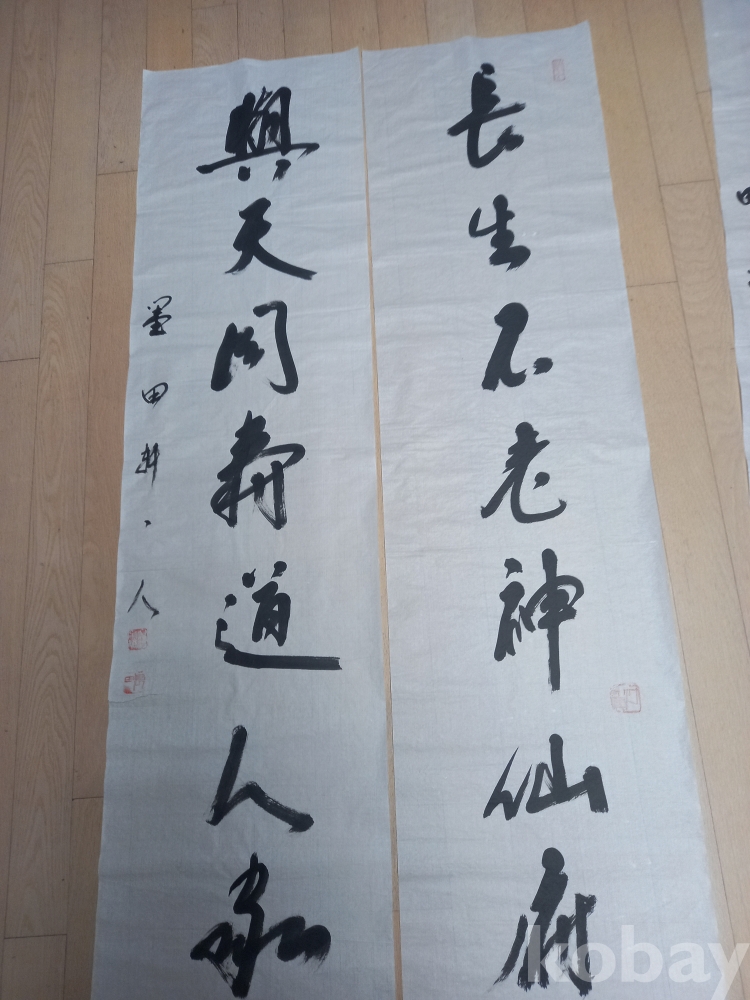 長生不老神仙府
與天同壽道人家
墨田耕、人
kobay